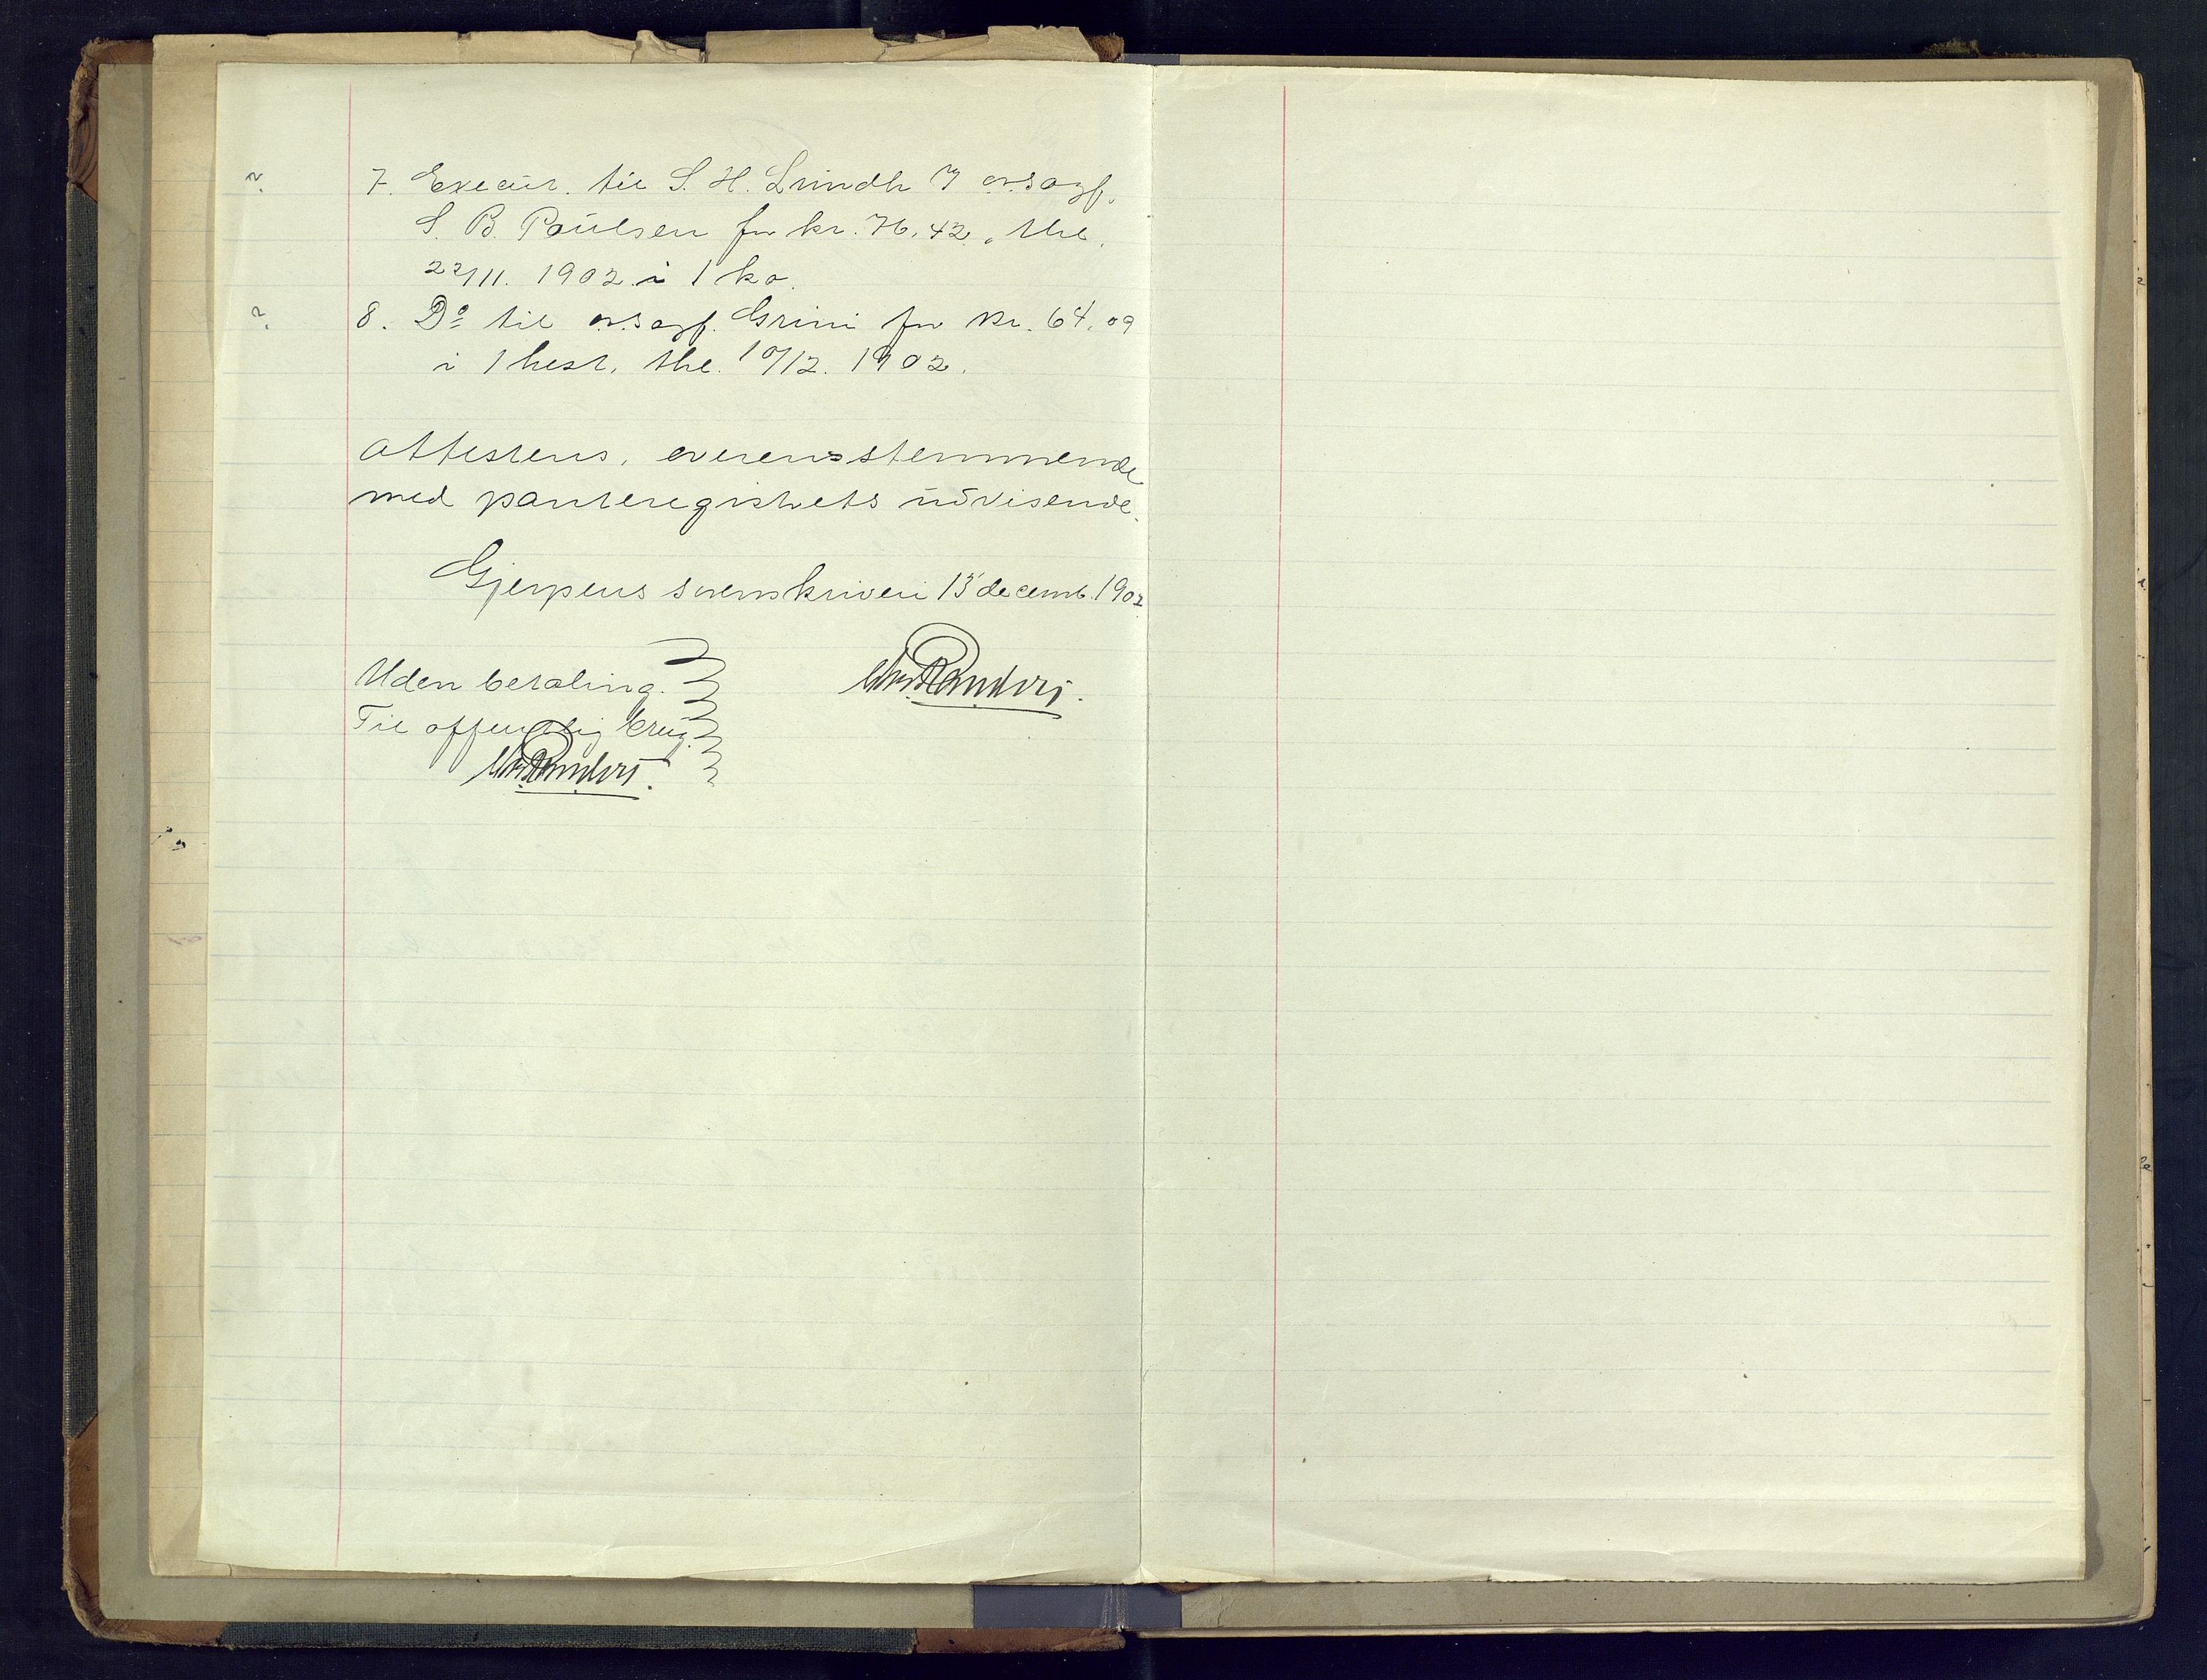 ?
7. Execut. til S. H. Lundh & ovsagf.
S. B. Poulsen for kr. 76,42, thl.
22/11. 1902 i 1 ko.
?
8. Do til ovsagf. Grini for kr. 64,09
i 1 hest, thl. 10/12. 1902.
Attesteres, overensstemmende
med panteregistrets udvisende.
Gjerpens sorenskriveri 15 decemb. 1902
Uden betaling.
Til offentlig brug.